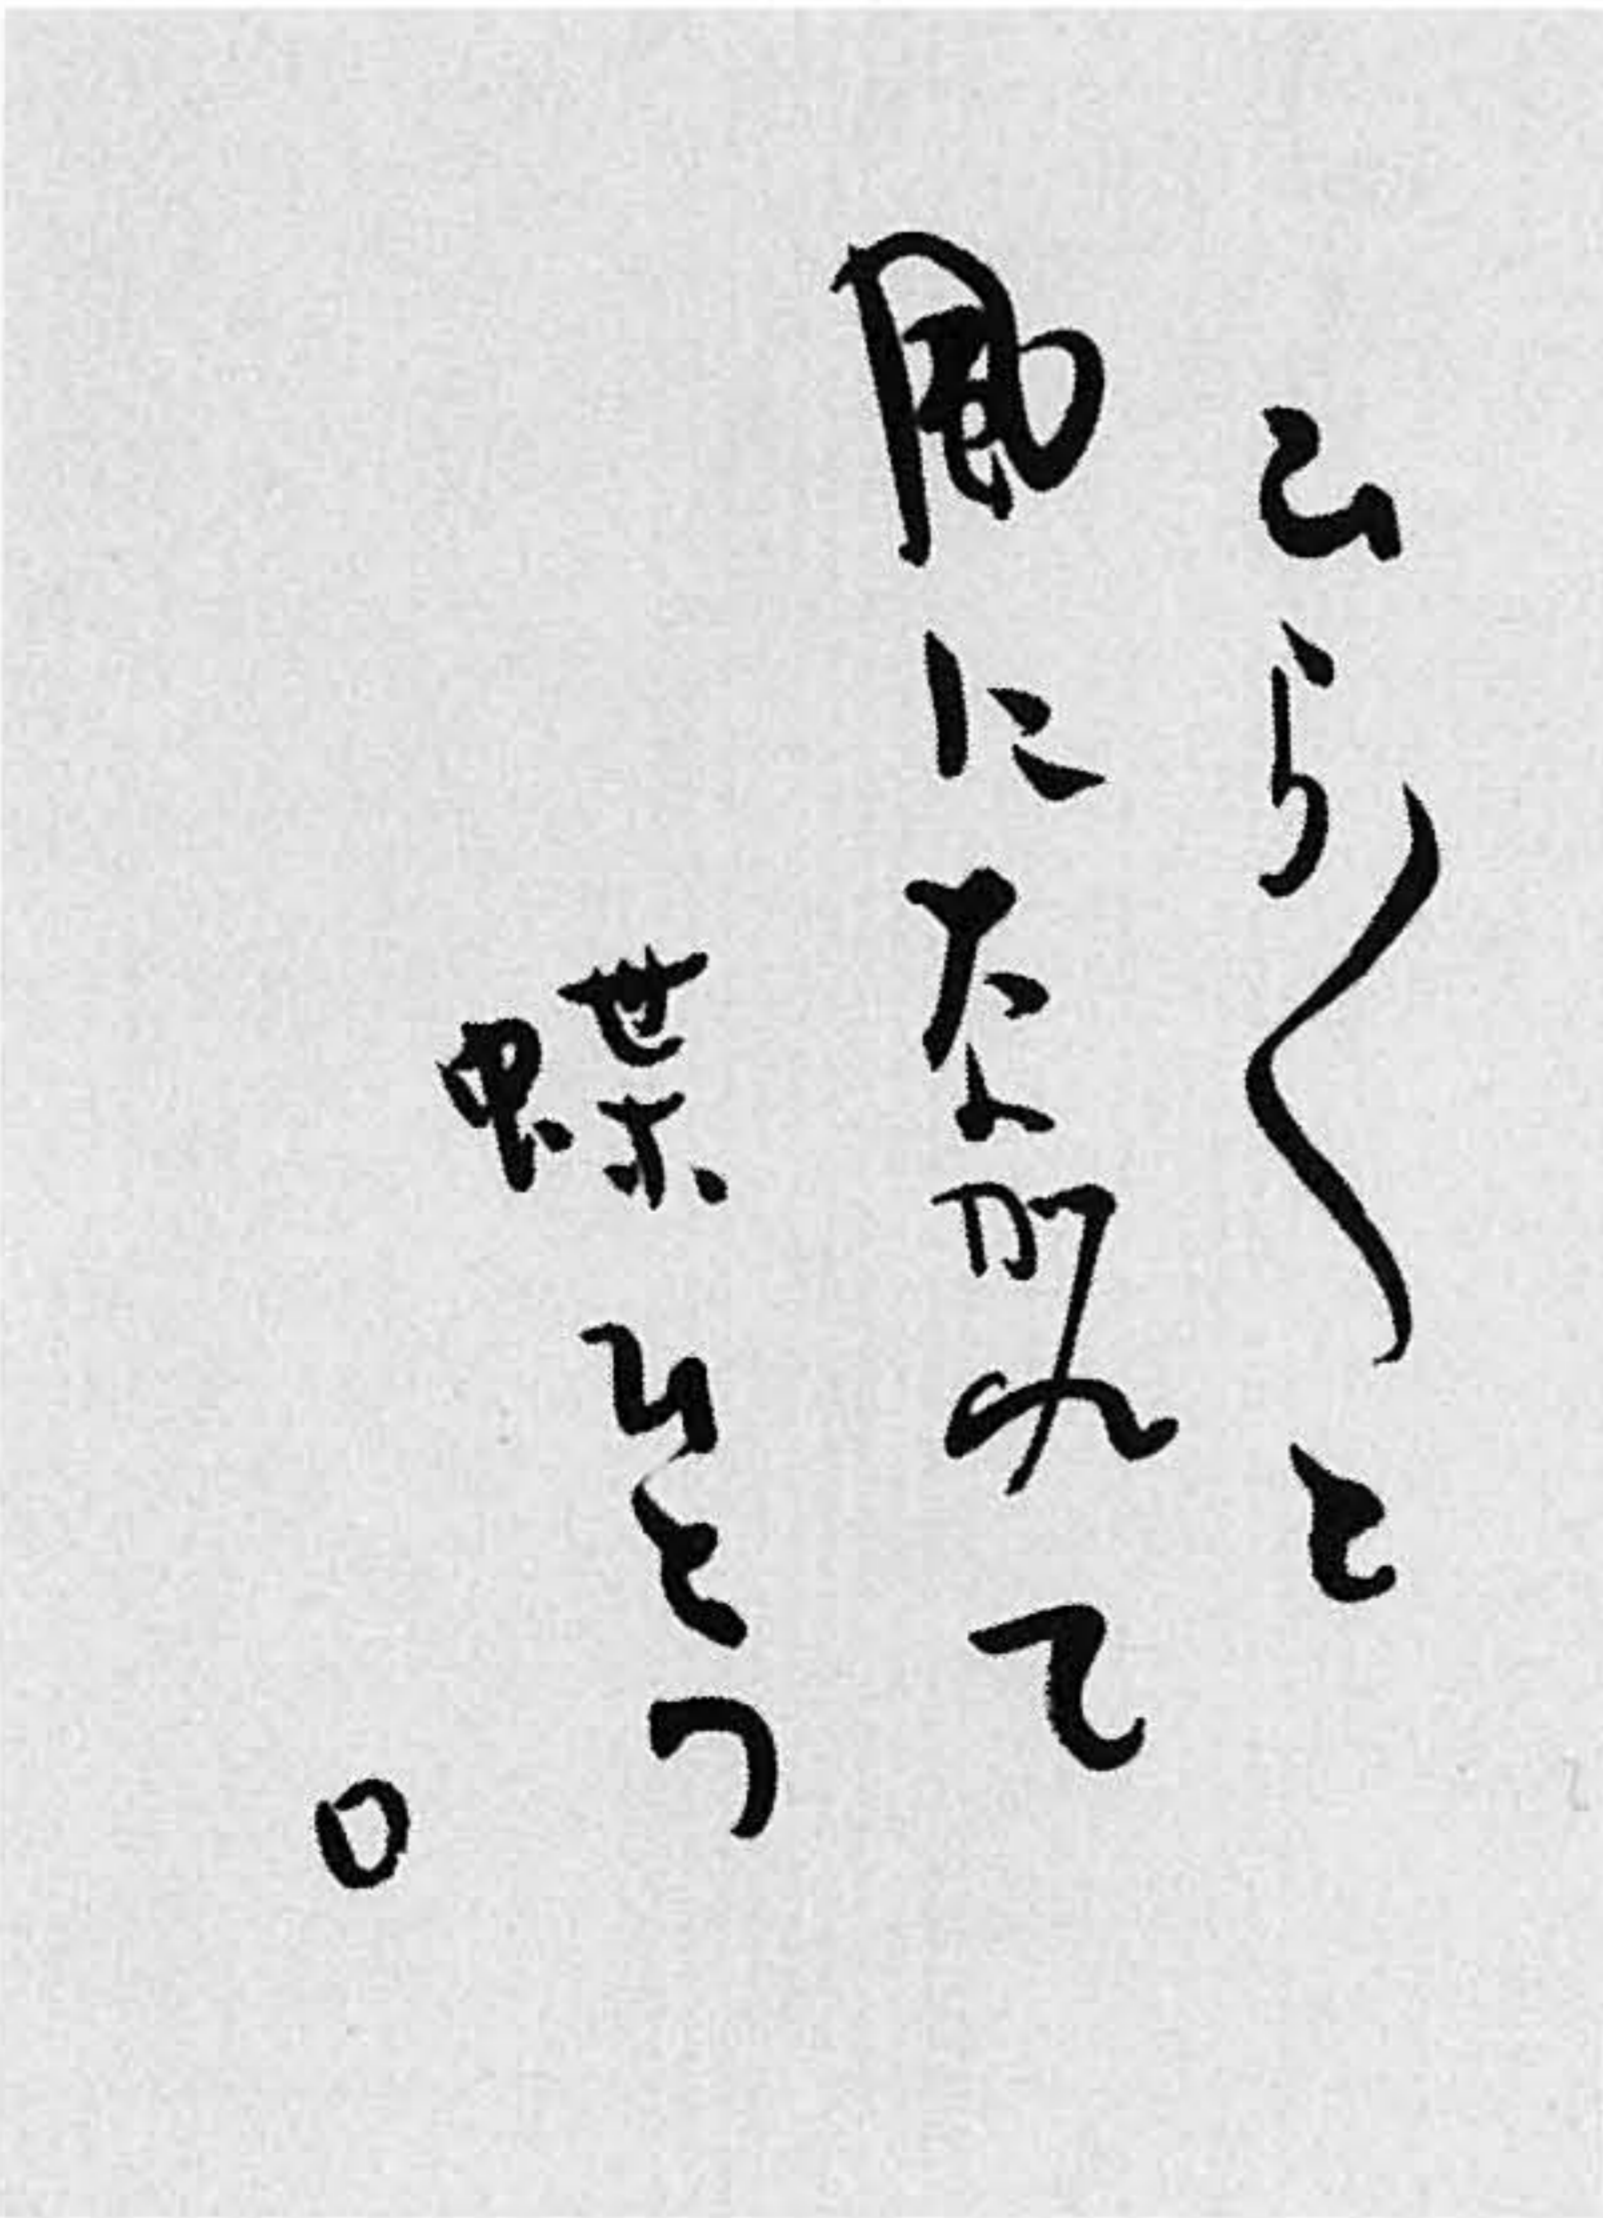 ひら〱と
風にながれて
蝶ひとつ
〇